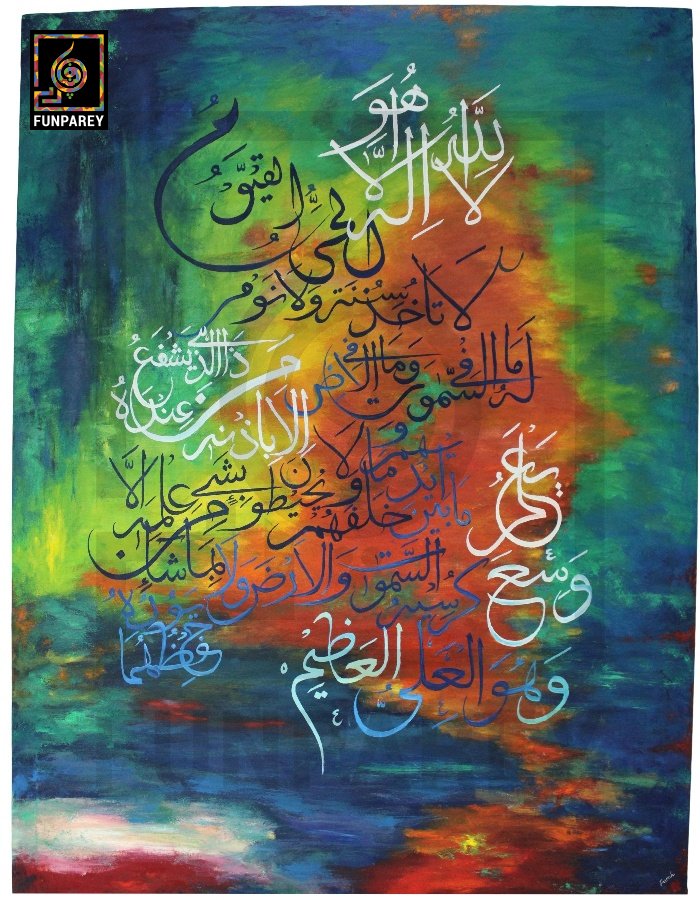 FUNPAREY
اللّٰهُ لَا اِلٰهَ اِلَّا هُوَ
الحَيُّ القَيُّومُ
لَا تَاخُذُهُ سِنَةٌ وَلَا نَوْمٌ
لَهُ مَا فِي السَّمٰوٰت وَمَا فِي الارْض
مَن ذَا الَّذِي يَشْفَعُ عِندَهُ
اِلَّا بِاذْنِهِ
يَعْلَمُ مَا بَيْنَ اَيْدِيهِم وَمَا خَلْفَهُمْ
وَلَا يُحِيطُونَ بِشَيْءٍ مِّنْ عِلْمِهِ اِلَّا بِمَا شَاءَ
وَسِعَ كُرْسِيُّهُ السَّمٰوٰت وَالارْضَ وَلَا يَئُودُهُ حِفْظُهُمَا
وَهُوَ العَلِيُّ العَظِيْمُ